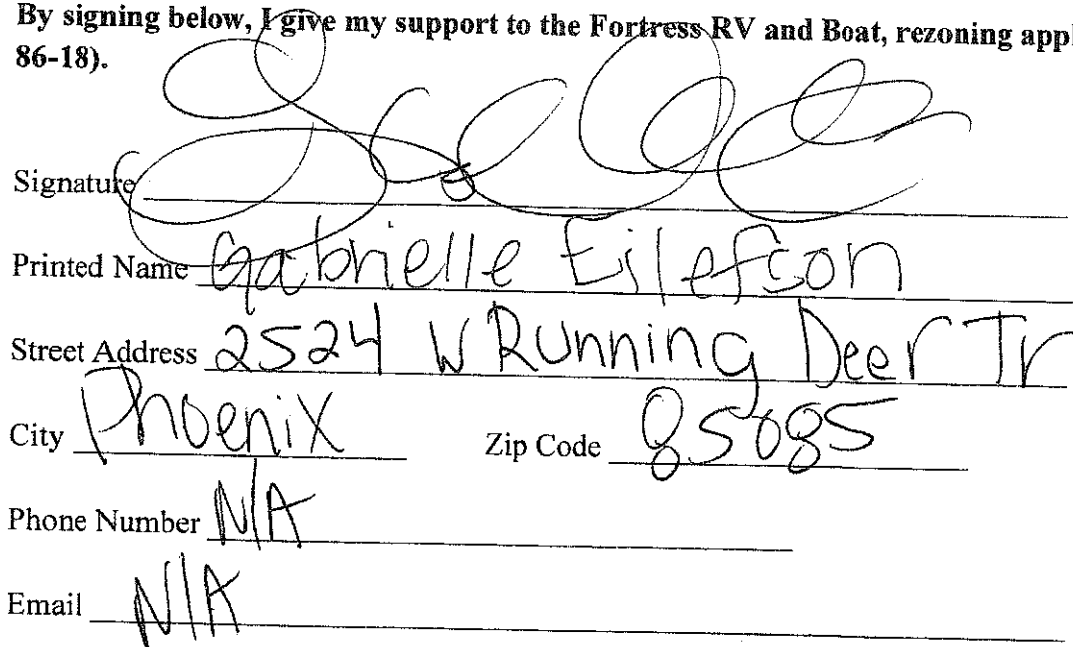 By signing below, I give my support to the Fortress RV and Boat, rezoning appl
86-18).
Signature
Printed Name Gabrielle Eilefson
Street Address 2524 W Running Deer Tr
City Phoenix Zip Code 85085
Phone Number N/A
Email N/A